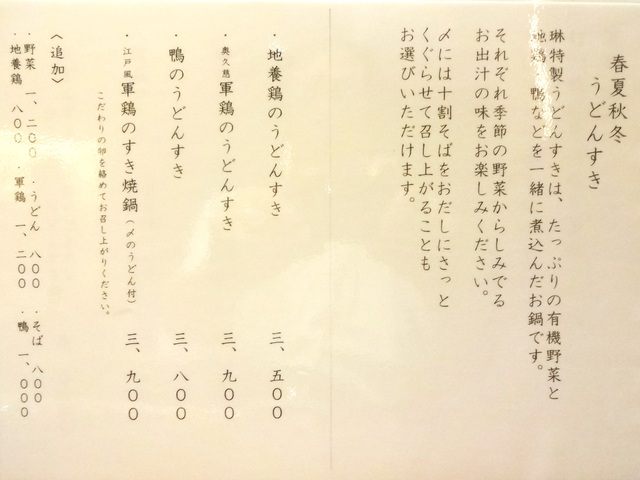 春夏秋冬
うどんすき
琳特製うどんすきは、たっぷりの有機野菜と
地鶏、鴨などを一緒に煮込んだお鍋です。
それぞれ季節の野菜からしみでる
お出汁の味をお楽しみください。
〆には十割そばをおだしにさっと
くぐらせて召し上がることも
お選びいただけます。
・地養鶏のうどんすき 三、五〇〇
・奥久慈 軍鶏のうどんすき 三、九〇〇
・鴨のうどんすき 三、八〇〇
・江戸風 軍鶏のすき焼鍋（〆のうどん付） 三、九〇〇
こだわりの卵を絡めてお召し上がりください。
〈追加〉
・野菜 一、二〇〇 ・うどん 八〇〇 ・そば 八〇〇
・地養鶏 八〇〇 ・軍鶏 一、二〇〇 ・鴨 一、〇〇〇